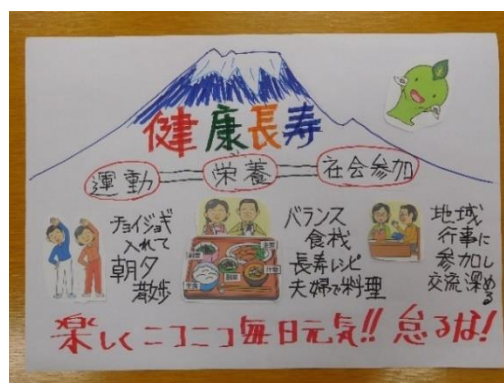 健康長寿
運動
栄養
社会参加
チョイジョギ
入れて
朝夕
散歩
バランス
食桟
長寿レシピ
夫婦で料理
地域
行事に
参加し
交流深める
楽しくニコニコ毎日元気!! 怠るな!